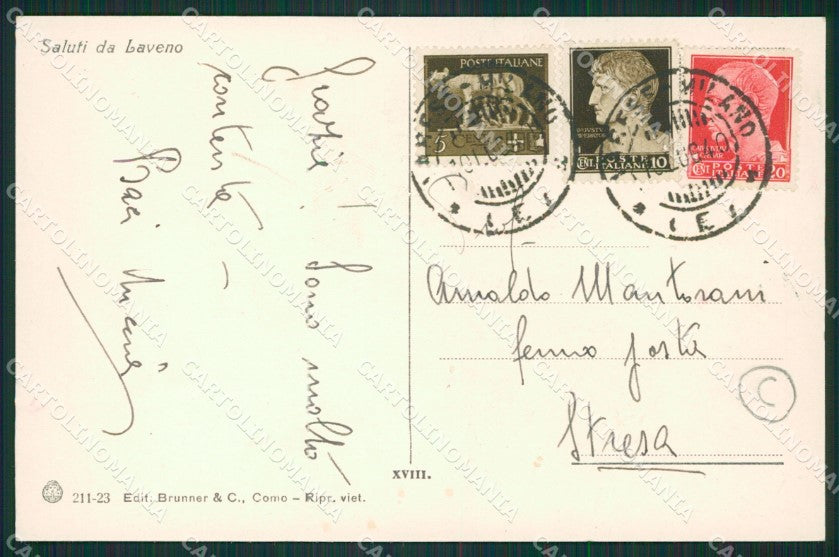 Saluti da Laveno
Grazie! Sono molto
contenta –
Baci
POSTE ITALIANE
5
POSTE
ITALIANE
CENT 10
POSTE
ITALIANE
CENT 20
VARESE - MILANO
Arnaldo Mantovani
fermo posta
Stresa
C
XVIII.
211-23 Edit. Brunner & C., Como – Ripr. viet.
CARTOLINOMANIA